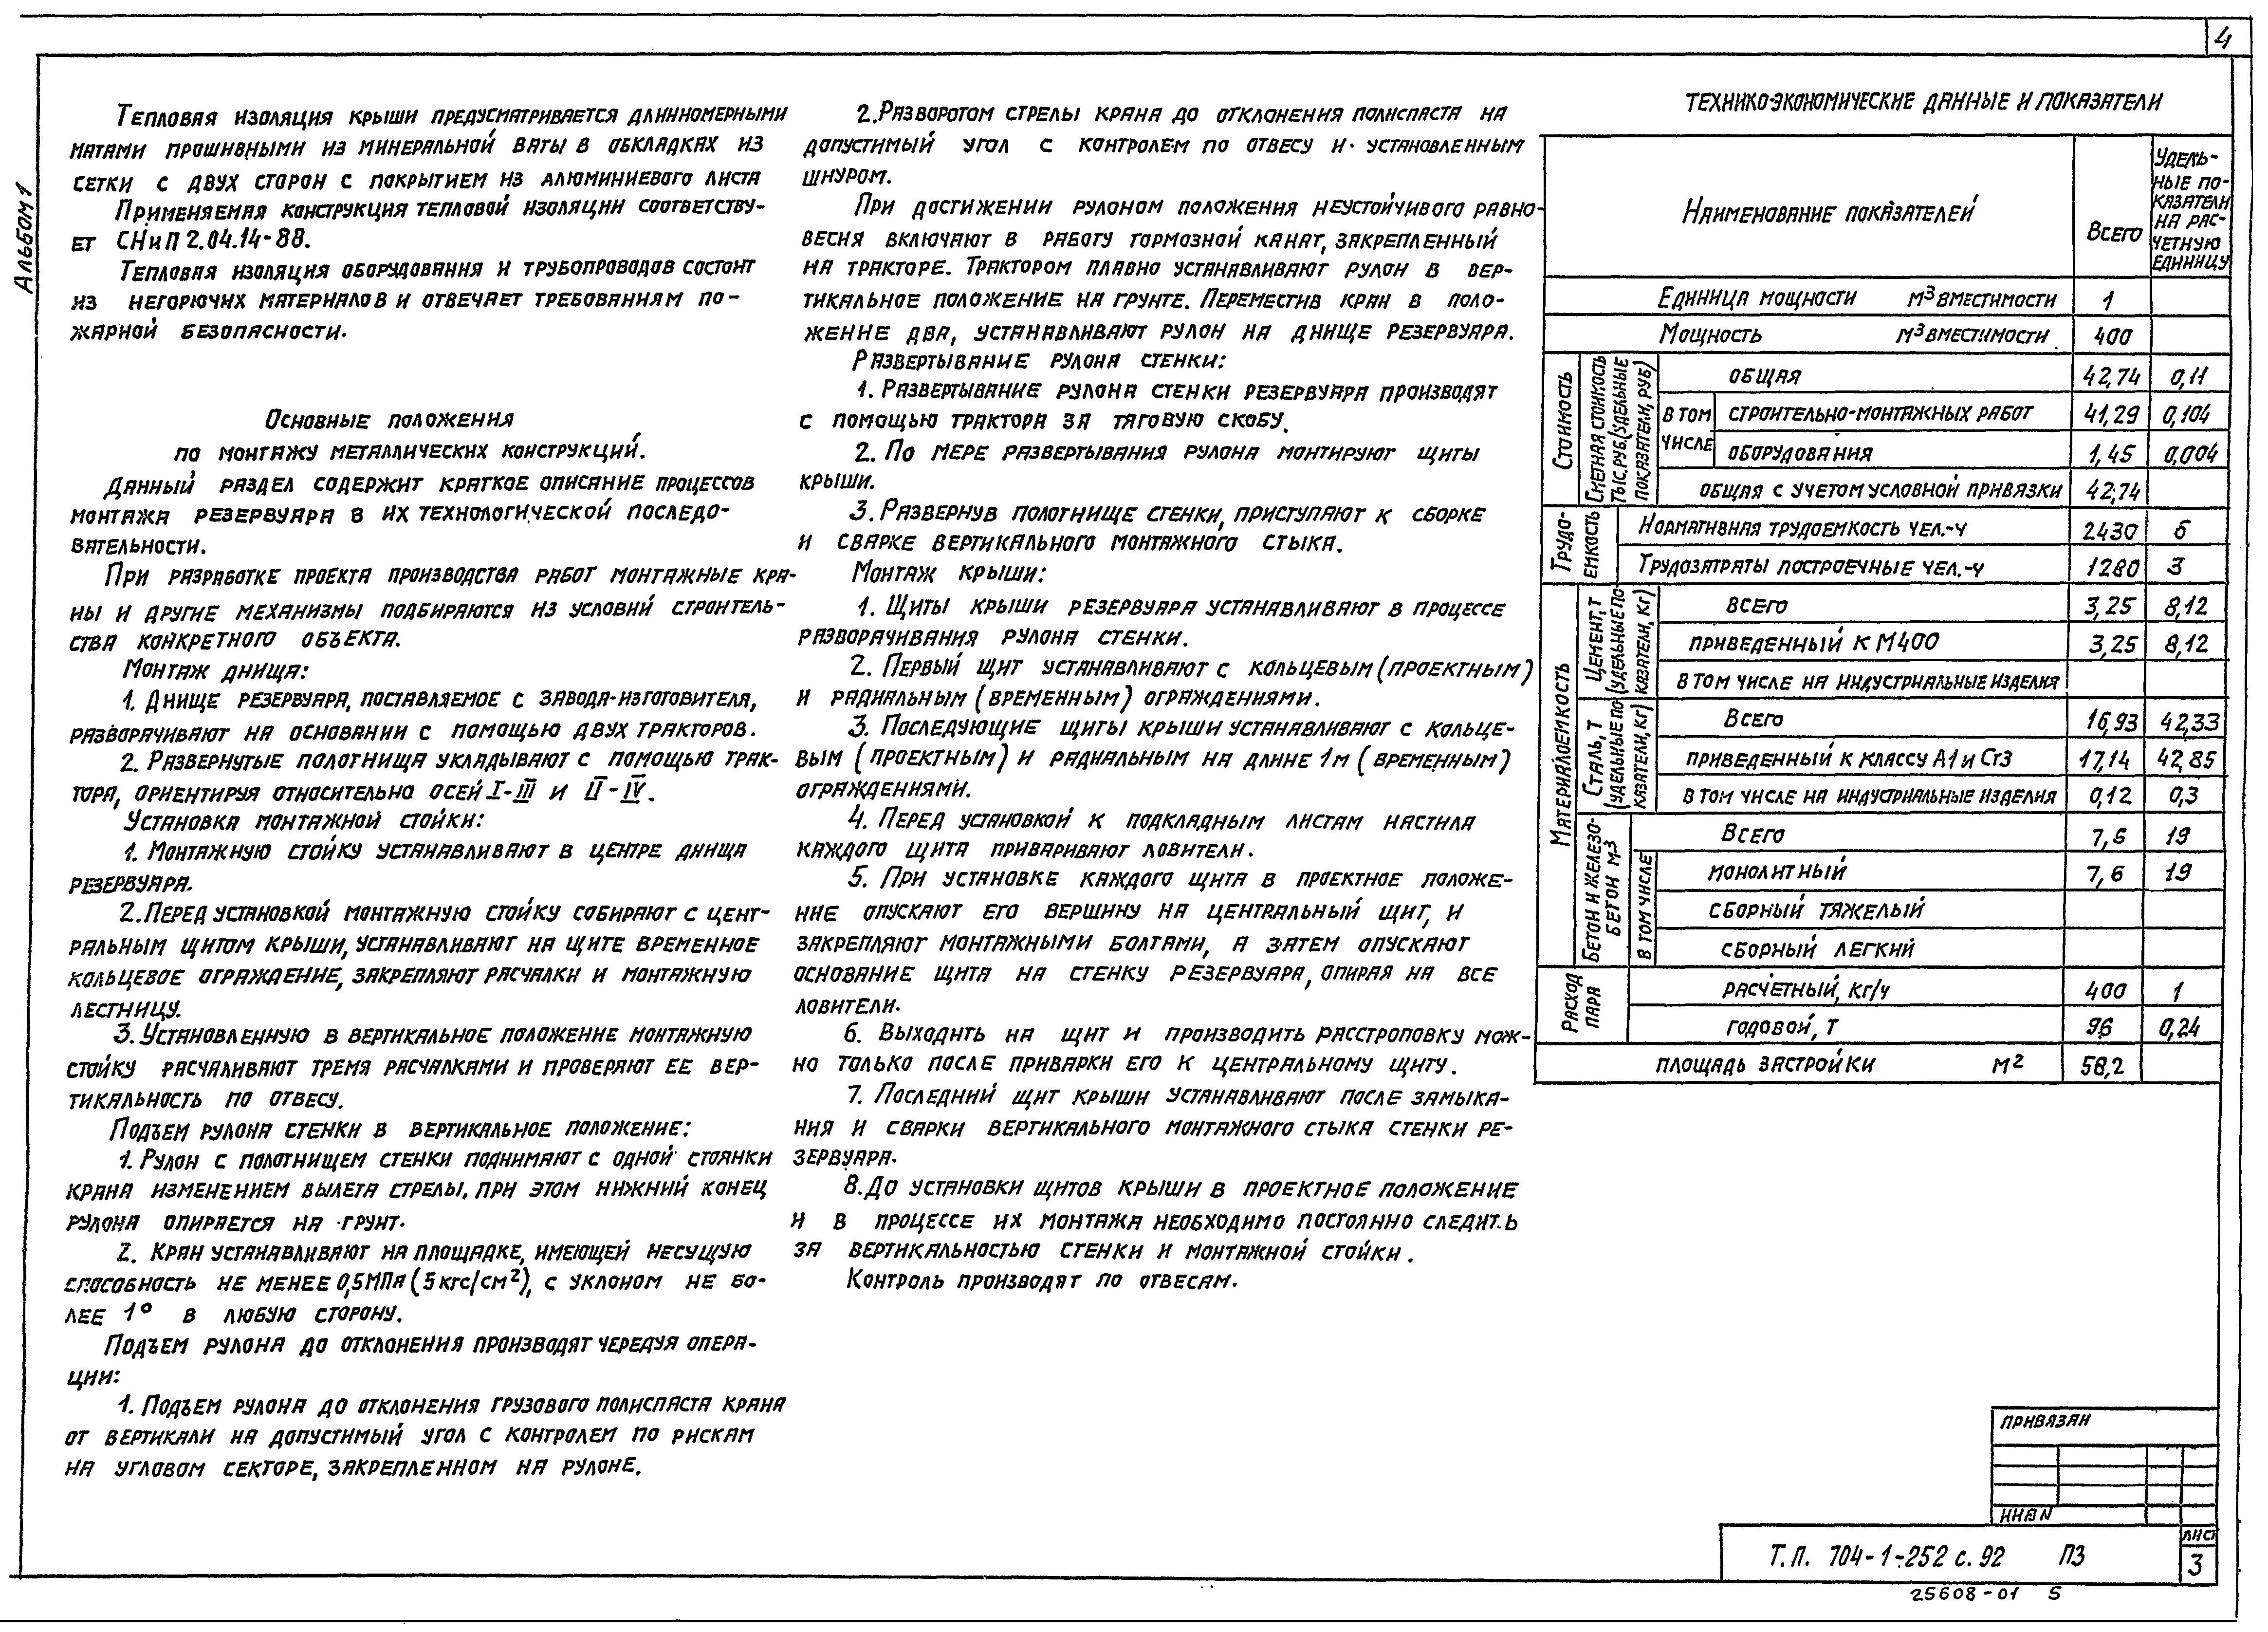 4
Альбом 1
Тепловая изоляция крыши предусматривается длинномерными
матами прошивными из минеральной ваты в обкладках из
сетки с двух сторон с покрытием из алюминиевого листа
Применяемая конструкция тепловой изоляции соответству-
ет СНиП 2.04.14-88.
Тепловая изоляция оборудования и трубопроводов состоит
из негорючих материалов и отвечает требованиям по-
жарной безопасности.
Основные положения
по монтажу металлических конструкций.
Данный раздел содержит краткое описание процессов
монтажа резервуара в их технологической последо-
вательности.
При разработке проекта производства работ монтажные кра-
ны и другие механизмы подбираются из условий строитель-
ства конкретного объекта.
Монтаж днища:
1. Днище резервуара, поставляемое с завода-изготовителя,
разворачивают на основании с помощью двух тракторов.
2. Развернутые полотнища укладывают с помощью трак-
тора, ориентируя относительно осей I-III и II-IV.
Установка монтажной стойки:
1. Монтажную стойку устанавливают в центре днища
резервуара.
2. Перед установкой монтажную стойку собирают с цент-
ральным щитом крыши, устанавливают на щите временное
кольцевое ограждение, закрепляют расчалки и монтажную
лестницу.
3. Установленную в вертикальное положение монтажную
стойку расчаливают тремя расчалками и проверяют ее вер-
тикальность по отвесу.
Подъем рулона стенки в вертикальное положение:
1. Рулон с полотнищем стенки поднимают с одной стоянки
крана изменением вылета стрелы. при этом нижний конец
рулона опирается на грунт.
2. Кран устанавливают на площадке, имеющей несущую
способность не менее 0,5МПа (5 кгс/см²), с уклоном не бо-
лее 1° в любую сторону.
Подъем рулона до отклонения производят чередуя опера-
ции:
1. Подъем рулона до отклонения грузового полиспаста крана
от вертикали на допустимый угол с контролем по рискам
на угловом секторе, закрепленном на рулоне.
2. Разворотом стрелы крана до отклонения полиспаста на
допустимый угол с контролем по отвесу и установленным
шнуром.
При достижении рулоном положения неустойчивого равно-
весия включают в работу тормозной канат, закрепленный
на тракторе. Трактором плавно устанавливают рулон в вер-
тикальное положение на грунте. Переместив кран в поло-
жение два, устанавливают рулон на днище резервуара.
Развертывание рулона стенки:
1. Развертывание рулона стенки резервуара производят
с помощью трактора за тяговую скобу.
2. По мере развертывания рулона монтируют щиты
крыши.
3. Развернув полотнище стенки, приступают к сборке
и сварке вертикального монтажного стыка.
Монтаж крыши:
1. Щиты крыши резервуара устанавливают в процессе
разворачивания рулона стенки.
2. Первый щит устанавливают с кольцевым (проектным)
и радиальным (временным) ограждениями.
3. Последующие щиты крыши устанавливают с кольце-
вым (проектным) и радиальным на длине 1м (временным)
ограждениями.
4. Перед установкой к подкладным листам настила
каждого щита приваривают ловители.
5. При установке каждого щита в проектное положе-
ние опускают его вершину на центральный щит, и
закрепляют монтажными болтами, а затем опускают
основание щита на стенку резервуара, опирая на все
ловители.
6. Выходить на щит и производить расстроповку мож-
но только после приварки его к центральному щиту.
7. Последний щит крыши устанавливают после замыка-
ния и сварки вертикального монтажного стыка стенки ре-
зервуара.
8. До установки щитов крыши в проектное положение
и в процессе их монтажа необходимо постоянно следить
за вертикальностью стенки и монтажной стойки.
Контроль производят по отвесам.
Технико-экономические данные и показатели
Наименование показателей Всего Удель-
ные по-
казатели
на рас-
четную
единицу
Единица мощности м³ вместимости 1
Мощность м³ вместимости 400
Стоимость
Сметная стоимость
тыс.руб.(удельные
показатели, руб)
общая 42,74 0,11
в том
числе
строительно-монтажных работ 41,29 0,104
оборудования 1,45 0,004
общая с учетом условной привязки 42,74
Трудо-
емкость
Нормативная трудоемкость чел.-ч 2430 6
Трудозатраты построечные чел.-ч 1280 3
Материалоемкость
Цемент, т
(удельные по-
казатели, кг)
всего 3,25 8,12
приведенный к М400 3,25 8,12
в том числе на индустриальные изделия
Сталь, т
(удельные по-
казатели, кг)
Всего 16,93 42,33
приведенный к классу А1 и Ст3 17,14 42,85
в том числе на индустриальные изделия 0,12 0,3
Бетон и железо-
бетон м³
Всего 7,6 19
в том числе
монолитный 7,6 19
сборный тяжелый
сборный легкий
Расход
пара
расчетный, кг/ч 400 1
годовой, т 96 0,24
площадь застройки м² 58,2
привязан
инв N
Т.П. 704-1-252 с. 92 ПЗ
лист
3
25608-01 5